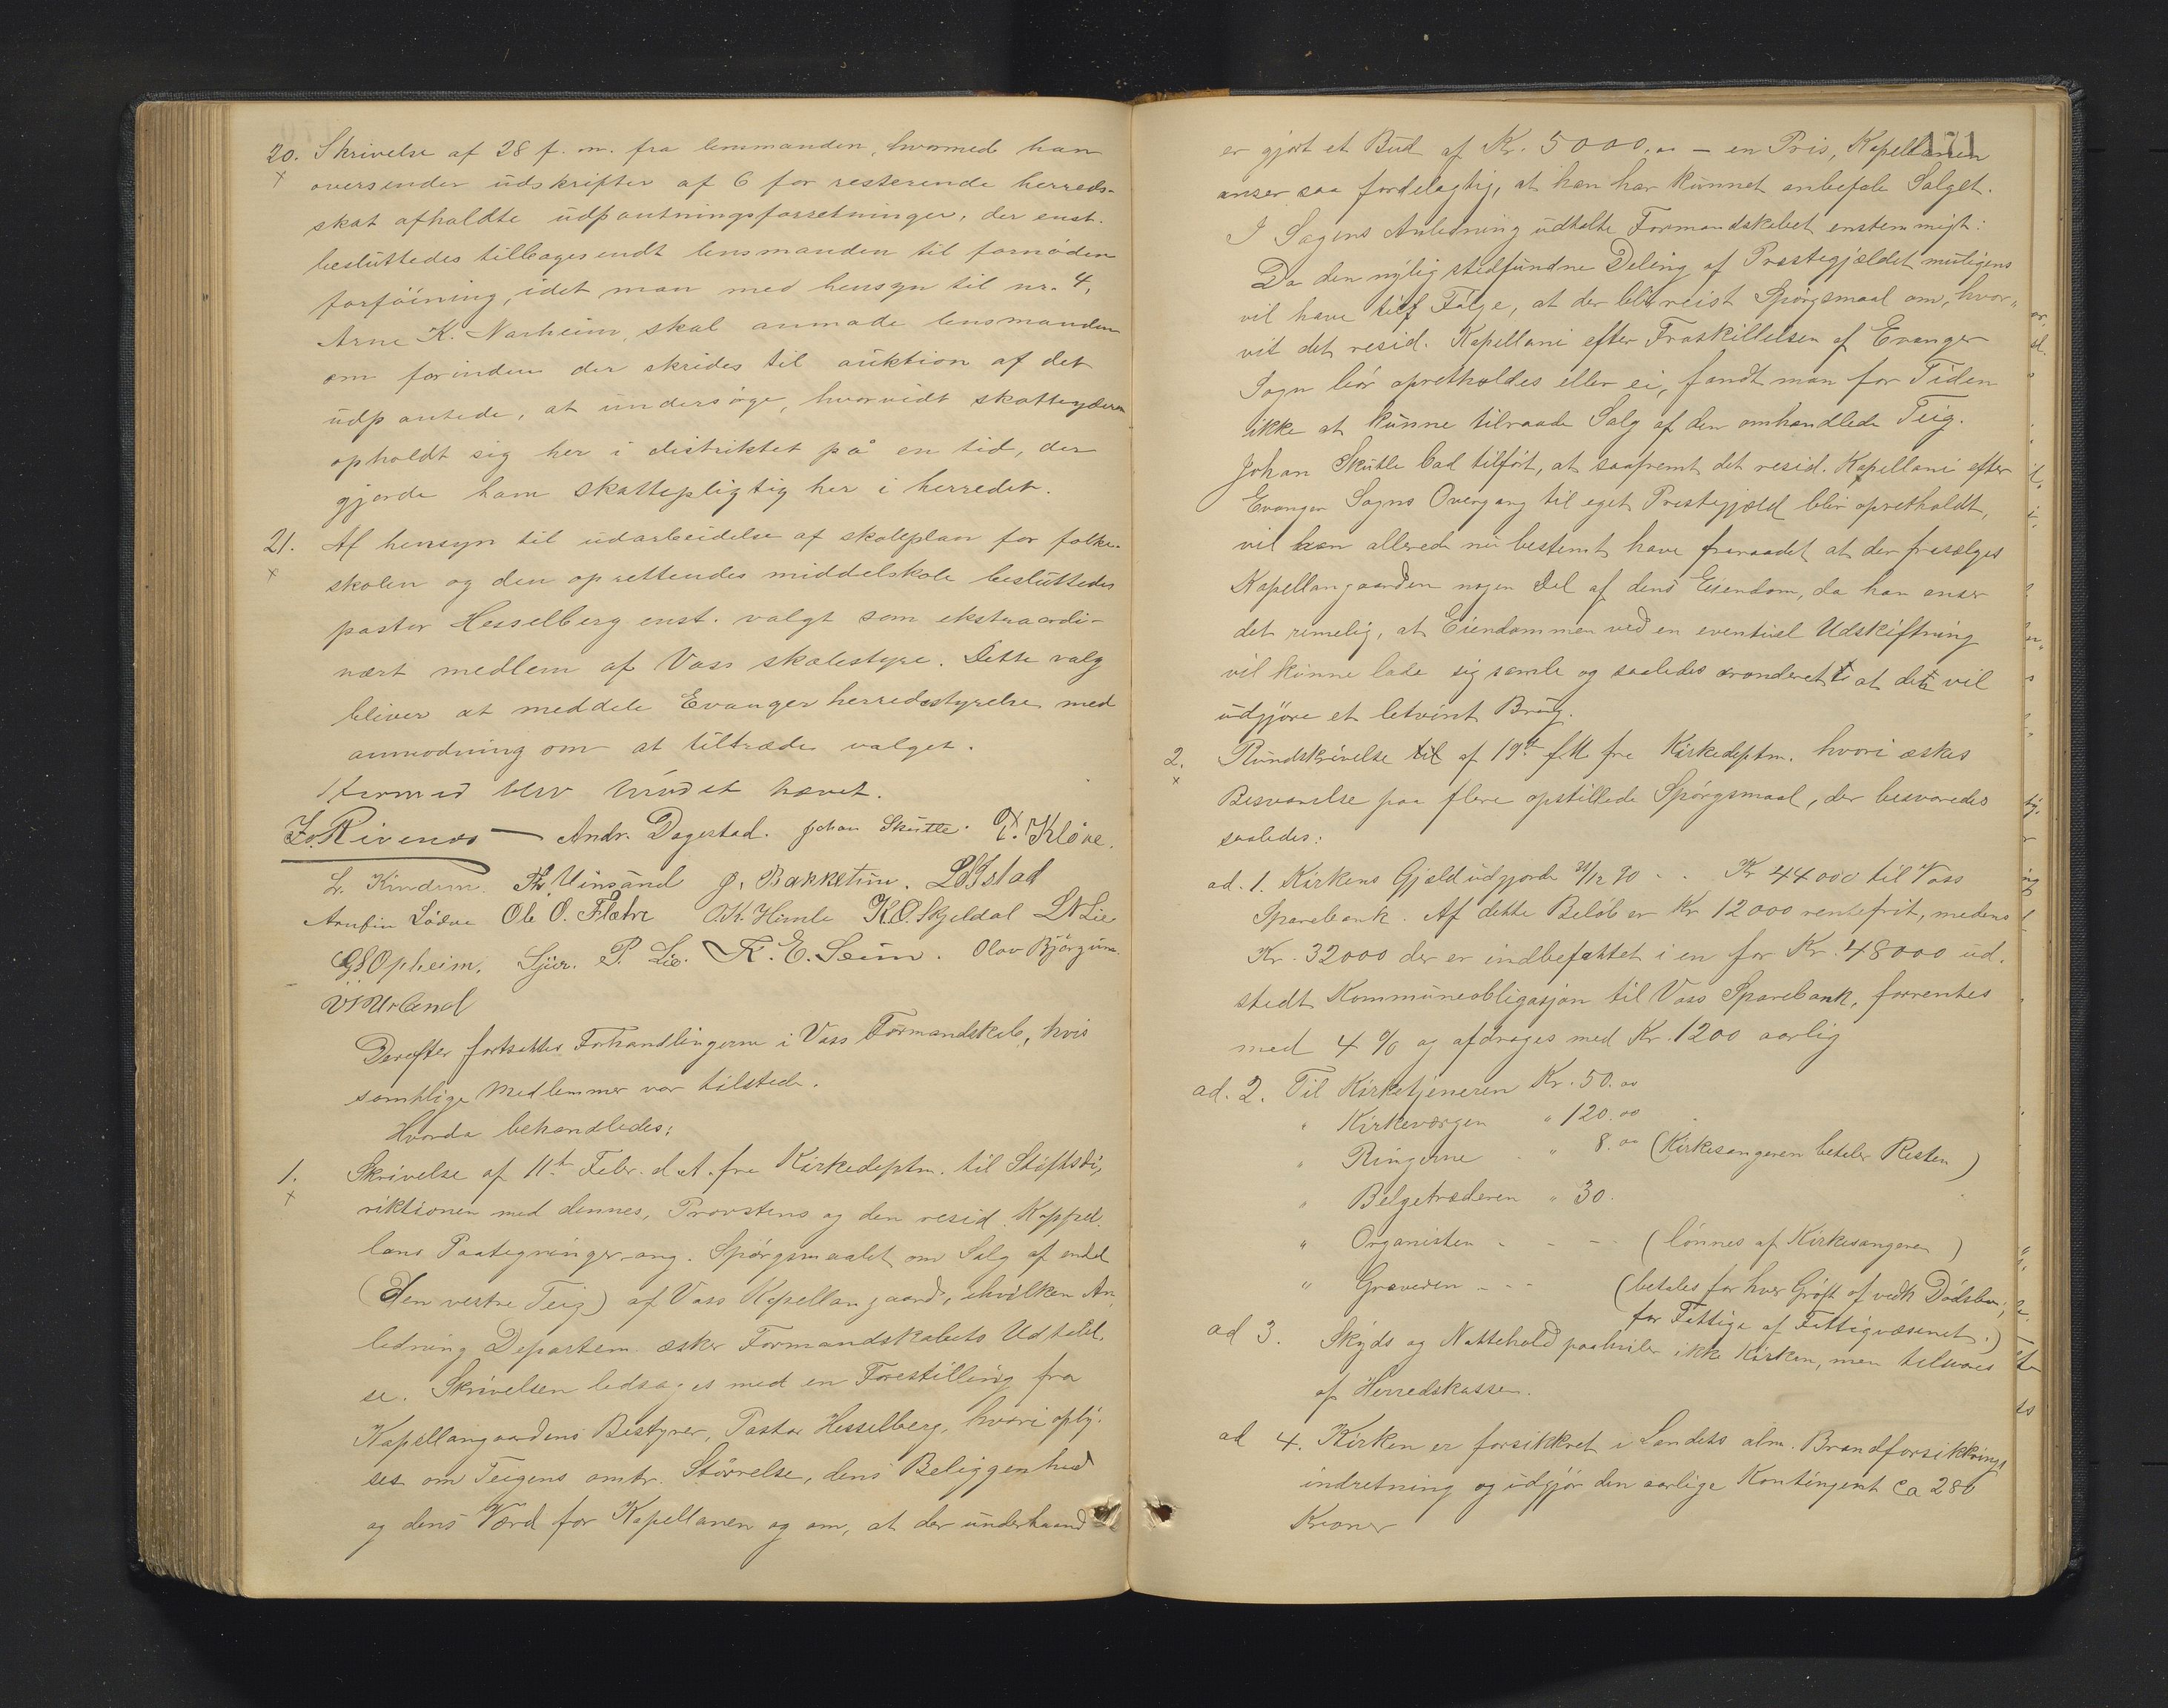 20. Skrivelse af 28 f. m. fra lensmanden, hvormed han
x oversender udskrifter af 6 for resterende herreds-
skat afholdte udpantningsforretninger, der enst.
besluttedes tilbagesendt lensmanden til fornøden
forføining, idet man med hensyn til nr. 4,
Arne K. Narheim, skal anmode lensmanden
om forinden der skrides til auktion af det
udpantede, at undersøge, hvorvidt skatteyderen
opholdt sig her i distriktet på en tid, der
gjorde ham skattepligtig her i herredet.
21. Af hensyn til udarbeidelse af skoleplan for folke-
x skolen og den oprettendes middelskole besluttedes
pastor Hesselberg enst. valgt som ekstraordi-
nært medlem af Voss skolestyre. Dette valg
bliver at meddele Evanger herredsstyrelse med
anmodning om at tiltræde valget.
Hermed blev mødet hævet.
Jo. Rivenes Andr. Dagestad. Johan Skutle. T. Kløve.
L. Kindem. Th. Uinsand Ø. Bakketun. L Bystad
Arnfin Lødve Ole O. Flatre O. K. Himle K. O. Skjeldal L N Lie
G S Opheim. Sjur. P. Lie. K. E. Seim. Olav Bjørgum.
Urland
Derefter fortsattes Forhandlingerne i Voss Formandskab, hvis
samtlige Medlemmer var tilstede.
Hvorda behandledes:
1. Skrivelse af 11te Febr. d. A. fra Kirkedeptm. til Stiftsdi-
x riktionen med dennes, Provstens og den resid. Kappel-
lans Paategninger ang. Spørgsmaalet om Salg af endel
(Den vestre Teig) af Voss Kapellangaard, i hvilken An-
ledning Departem. æsker Formandskabets Udtalel-
se. Skrivelsen ledsages med en Forestilling fra
Kapellangaardens Bestyrer, Pastor Hesselberg, hvori oply-
ses om Teigens omtr. Størrelse, dens Beliggenhed
og dens Værd for Kapellanen og om, at der underhaand
171
er gjort et Bud af Kr. 5000.00 – en Pris, Kapellanen
anser saa fordelagtig, at han har kunnet anbefale Salget.
I Sagens Anledning udtalte Formandskabet enstemmigt:
Da den nylig stedfundne Deling af Præstegjældet muligens
vil have til Følge, at der blir reist Spørgsmaal om, hvor-
vit det resid. Kapellani efter Fraskillelsen af Evanger
Sogn bør opretholdes eller ei, fandt man for Tiden
ikke at kunne tilraade Salg af den omhandlede Teig.
Johan Skutle bad tilført, at saafremt det resid. Kapellani efter
Evanger Sogns Overgang til eget Prestegjæld blir opretholdt,
vil han allerede nu bestemt have fraraadet at der frasælges
Kapellangaarden nogen Del af dens Eiendom, da han anser
det rimelig, at Eiendommen ved en eventuel Udskiftning
vil kunne lade sig samle og saaledes aronderet at det vil
udgjøre et letvint Brug.
2. Rundskrivelse af 19de f. M. fra Kirkedeptm. hvori æskes
x Besvarelse paa flere opstillede Spørgsmaal, der besvaredes
saaledes:
ad. 1. Kirkens Gjæld udgjorde 31/12 90 - - Kr 44000 til Voss
Sparebank. Af dette Beløb er Kr 12000 rentefrit, medens
Kr. 32000 der er indbefattet i en for Kr. 48000 ud-
stedt Kommuneobligasjon til Voss Sparebank, forrentes
med 4 % og afdrages med Kr. 1200 aarlig
ad. 2. Til Kirketjeneren Kr. 50.00
" Kirkeværgen " 120.00
" Ringerne " 8.00 (Kirkesangeren betaler Resten)
" Belgetræderen " 30.
" Organisten - - - (lønnes af Kirkesangeren)
" Graveren - - (betales for hver Grøft af vedk Dødsbo;
for Fattige af Fattigvæsenet.)
ad 3. Skyds og Nattehold paahviler ikke Kirken, men tilsvares
af Herredskassen.
ad 4. Kirken er forsikkret i Landets alm. Brandforsikkrings
indretning og udgjør den aarlige Kontingent ca 280
Kroner